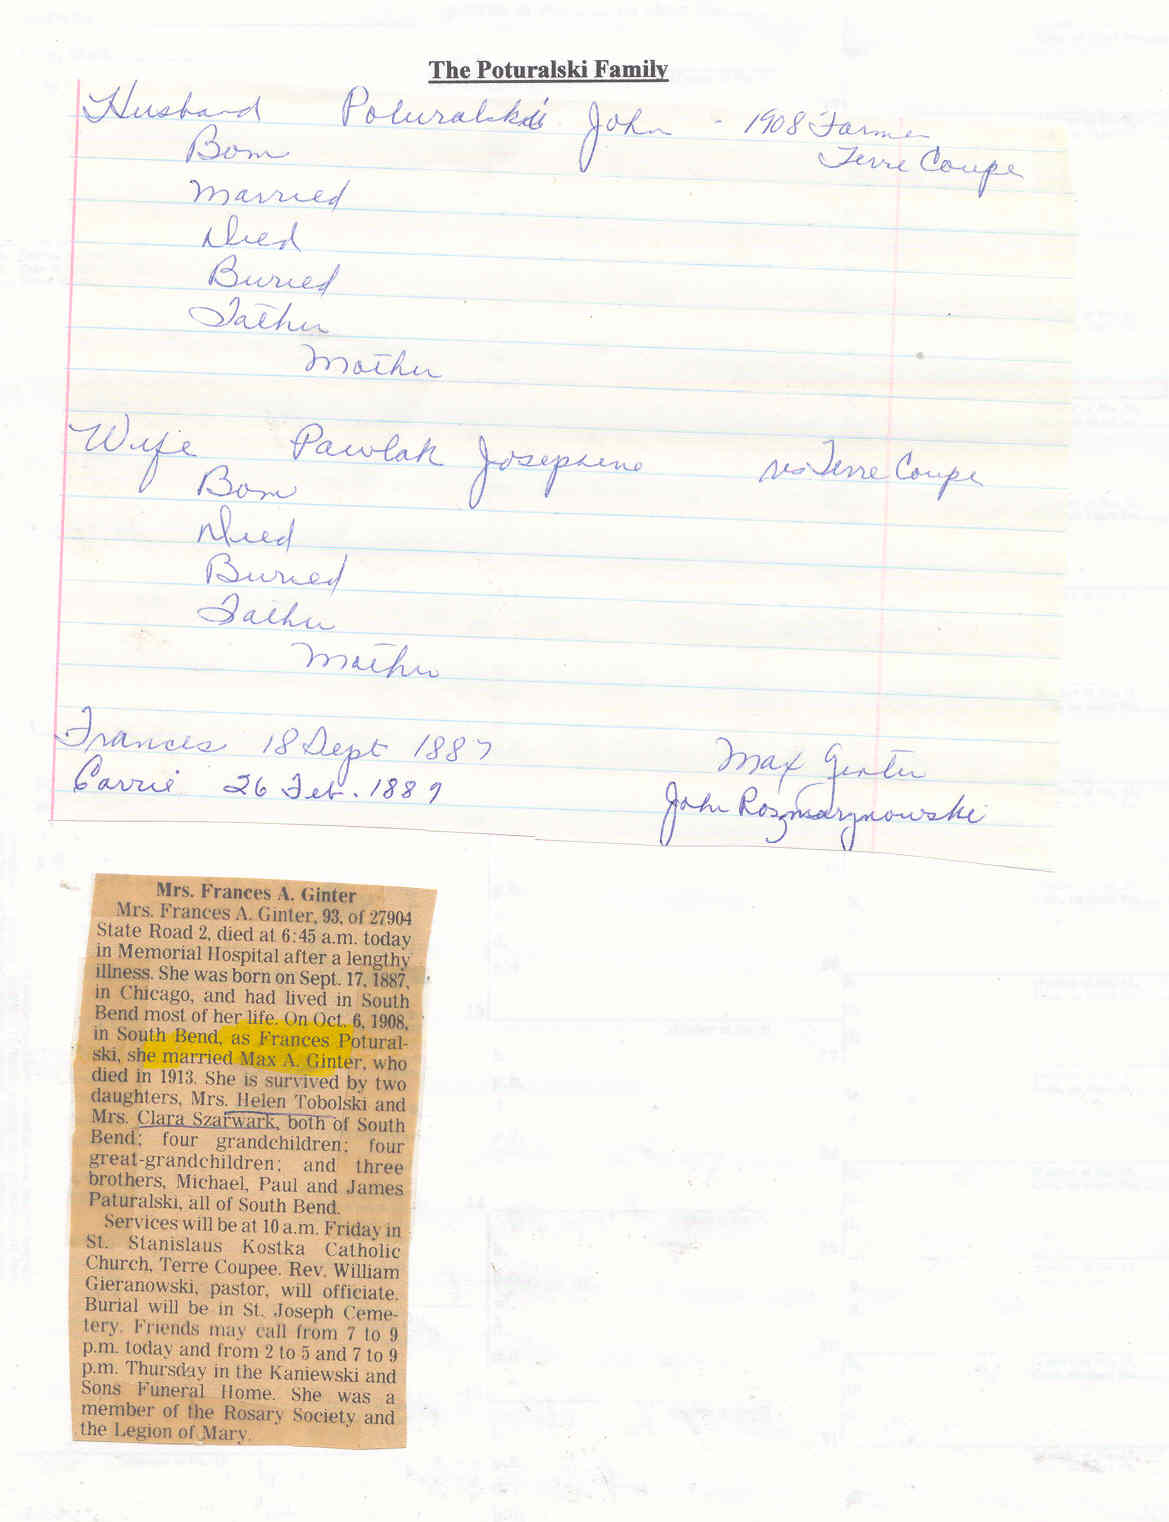 The Poturalski Family
Husband Poturalski John - 1908 Farmer
Terre Coupe
Born
Married
Died
Buried
Father
Mother
Wife Pawlak Josephine res Terre Coupe
Born
Died
Buried
Father
Mother
Frances 18 Sept 1887 Max Ginter
Carrie 26 Feb. 1889 John Rozmarynowski
Mrs. Frances A. Ginter
Mrs. Frances A. Ginter, 93, of 27904
State Road 2, died at 6:45 a.m. today
in Memorial Hospital after a lengthy
illness. She was born on Sept. 17, 1887,
in Chicago, and had lived in South
Bend most of her life. On Oct. 6, 1908,
in South Bend, as Frances Potural-
ski, she married Max A. Ginter, who
died in 1913. She is survived by two
daughters, Mrs. Helen Tobolski and
Mrs. Clara Szarwark, both of South
Bend; four grandchildren; four
great-grandchildren; and three
brothers, Michael, Paul and James
Paturalski, all of South Bend.
Services will be at 10 a.m. Friday in
St. Stanislaus Kostka Catholic
Church, Terre Coupee. Rev. William
Gieranowski, pastor, will officiate.
Burial will be in St. Joseph Ceme-
tery. Friends may call from 7 to 9
p.m. today and from 2 to 5 and 7 to 9
p.m. Thursday in the Kaniewski and
Sons Funeral Home. She was a
member of the Rosary Society and
the Legion of Mary.